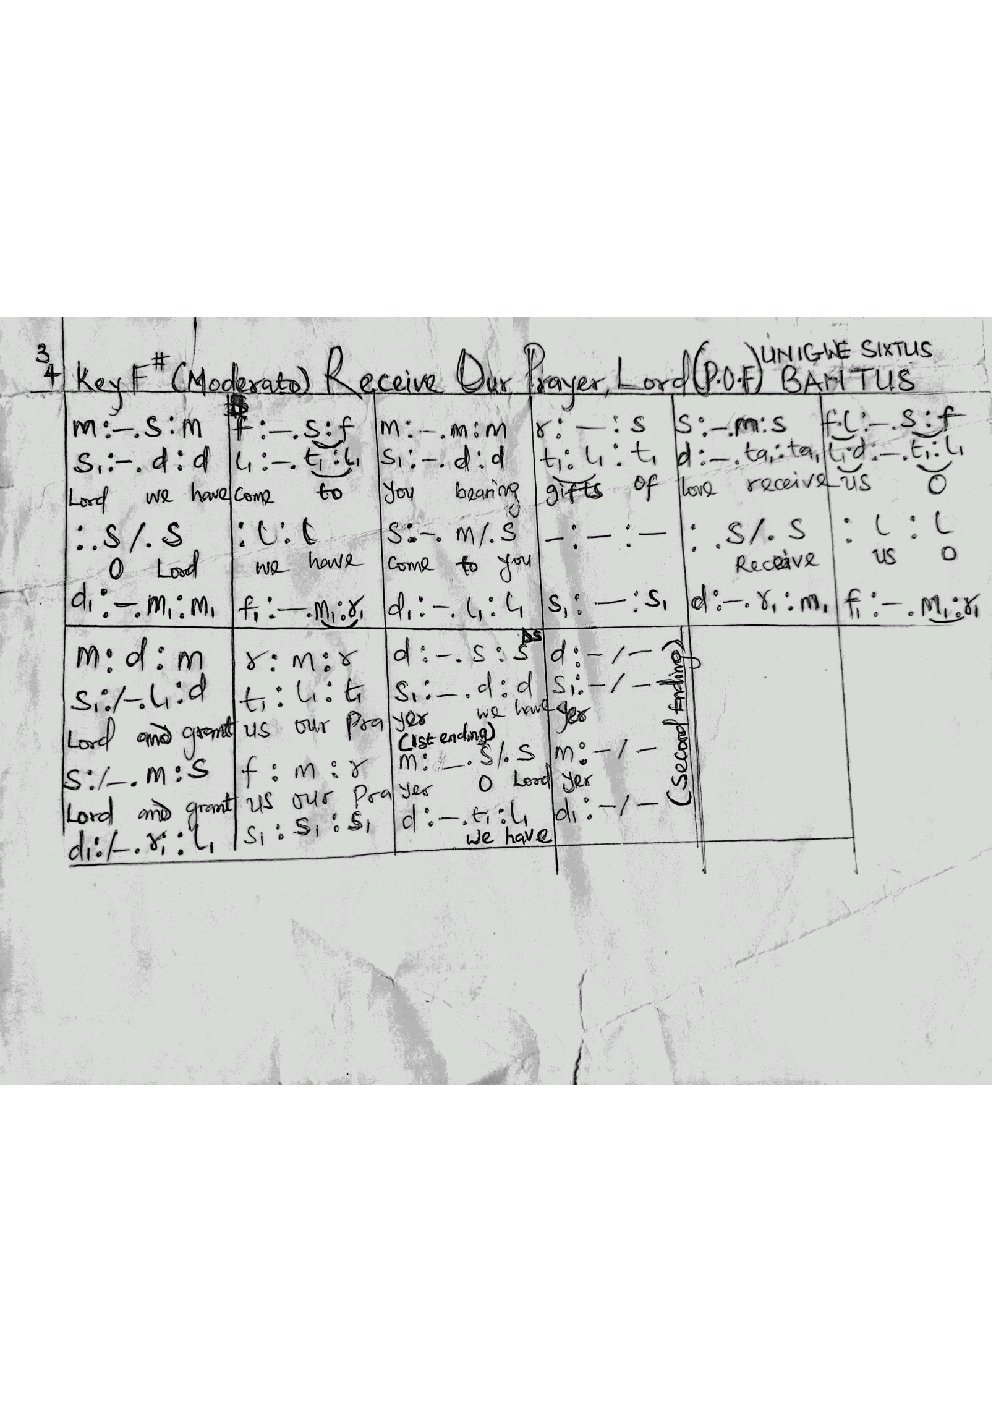 3/4 Key F# (Moderato) Receive Our Prayer, Lord (P.O.F) UNIGWE SIXTUS BANTUS
m:-.s:m | f:-.s:f | m:-.m:m | r:-:s | s:-.m:s | f.l:-.s:f
s₁:-.d:d | l₁:-.t₁:l₁ | s₁:-.d:d | t₁:l₁:t₁ | d:-.ta₁:ta₁ | l₁.d:-.t₁:l₁
Lord we have come to you bearing gifts of love receive us O
:.s/.s | :l:l | s:-.m/.s | -:-:- | :.s/.s | :l:l
O Lord we have come to you Receive us O
d₁:-.m₁:m₁ | f₁:-.m₁:r₁ | d₁:-.l₁:l₁ | s₁:-:s₁ | d:-.r₁:m₁ | f₁:-.m₁:r₁
DS
m:d:m | r:m:r | d:-.s:s | d:-/-
s₁:/-.l₁:d | t₁:l₁:t₁ | s₁:-.d:d | s₁:-/-
Lord and grant us our Pra yer we have yer
(1st ending)
(Second Ending)
s:/-.m:s | f:m:r | m:-.s/.s | m:-/-
Lord and grant us our Pra yer O Lord yer
d₁:/-.r₁:l₁ | s₁:s₁:s₁ | d:-.t₁:l₁ | d₁:-/-
we have